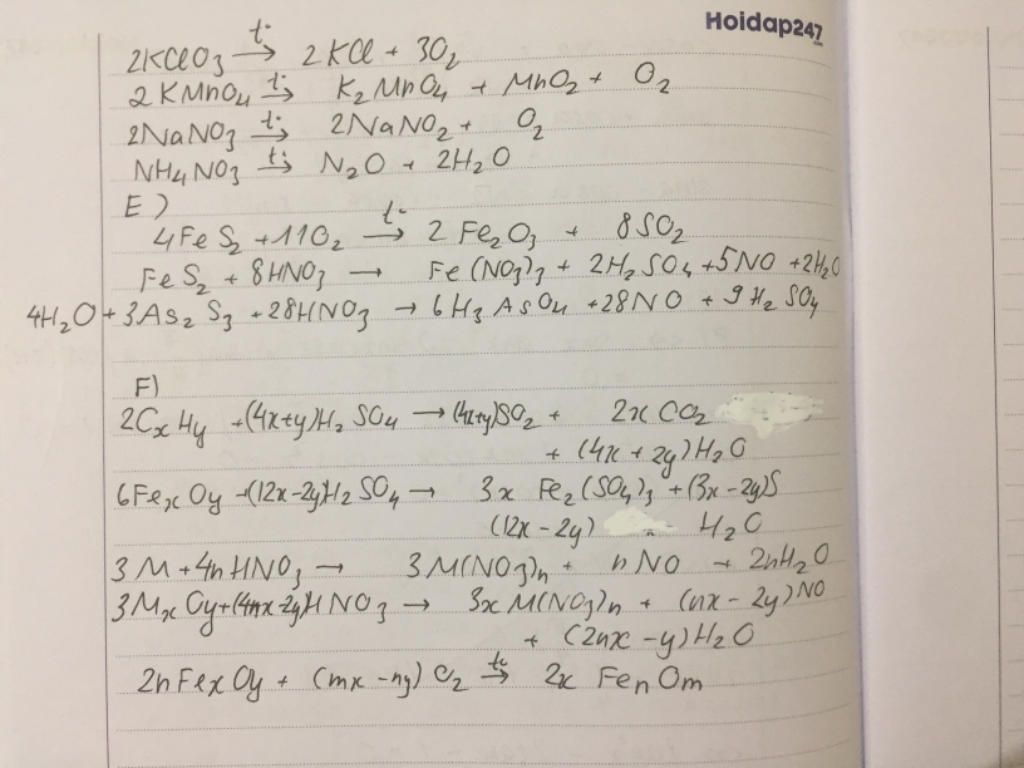 Hoidap247
2KClO₃ →(t°) 2KCl + 3O₂
2KMnO₄ →(t°) K₂MnO₄ + MnO₂ + O₂
2NaNO₃ →(t°) 2NaNO₂ + O₂
NH₄NO₃ →(t°) N₂O + 2H₂O
E)
4FeS₂ + 11O₂ →(t°) 2Fe₂O₃ + 8SO₂
FeS₂ + 8HNO₃ → Fe(NO₃)₃ + 2H₂SO₄ + 5NO + 2H₂O
4H₂O + 3As₂S₃ + 28HNO₃ → 6H₃AsO₄ + 28NO + 9H₂SO₄
F)
2CₓHᵧ + (4x+y)H₂SO₄ → (4x+y)SO₂ + 2xCO₂
+ (4x + 2y)H₂O
6FeₓOᵧ + (12x-2y)H₂SO₄ → 3x Fe₂(SO₄)₃ + (3x-2y)S
(12x - 2y) H₂O
3M + 4nHNO₃ → 3M(NO₃)n + nNO + 2nH₂O
3MₓOᵧ + (4nx-2y)HNO₃ → 3xM(NO₃)n + (nx - 2y)NO
+ (2nx - y)H₂O
2nFeₓOᵧ + (mx - ny)O₂ →(t°) 2x FenOm